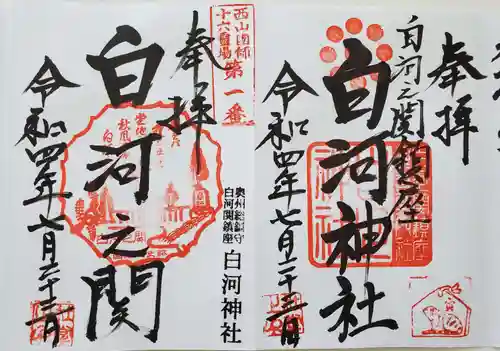 奉拝
白河之関鎮座
白河神社
令和四年七月二十三日
西山国師
十六霊場
第一番
奉拝
白河之関
奥州総鎮守
白河関鎮座
白河神社
令和四年七月二十三日